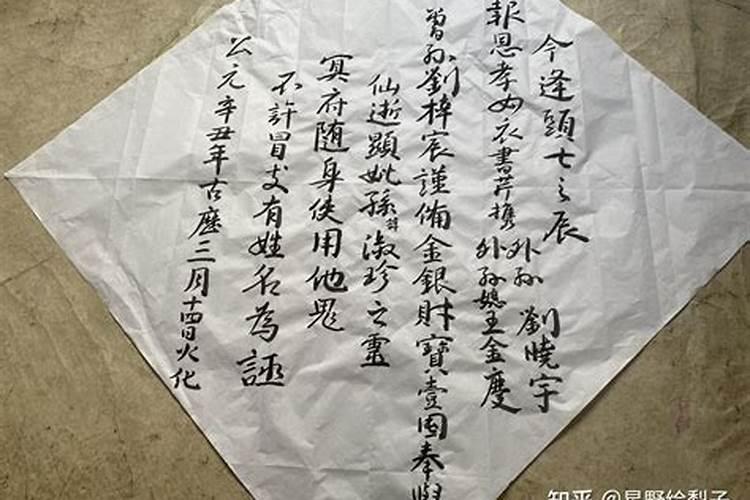 今逢頭七之辰
外孙 劉曉宇
報恩孝女衣書芹携
外孙媳王金慶
曾孙劉梓宸謹備金銀財寶壹囤奉與
仙逝顯妣孫諱淑珍之靈
冥府随身使用他鬼
不許冒支有姓名為證
公元辛丑年古歷三月十四日火化
知乎 @星野绘梨子